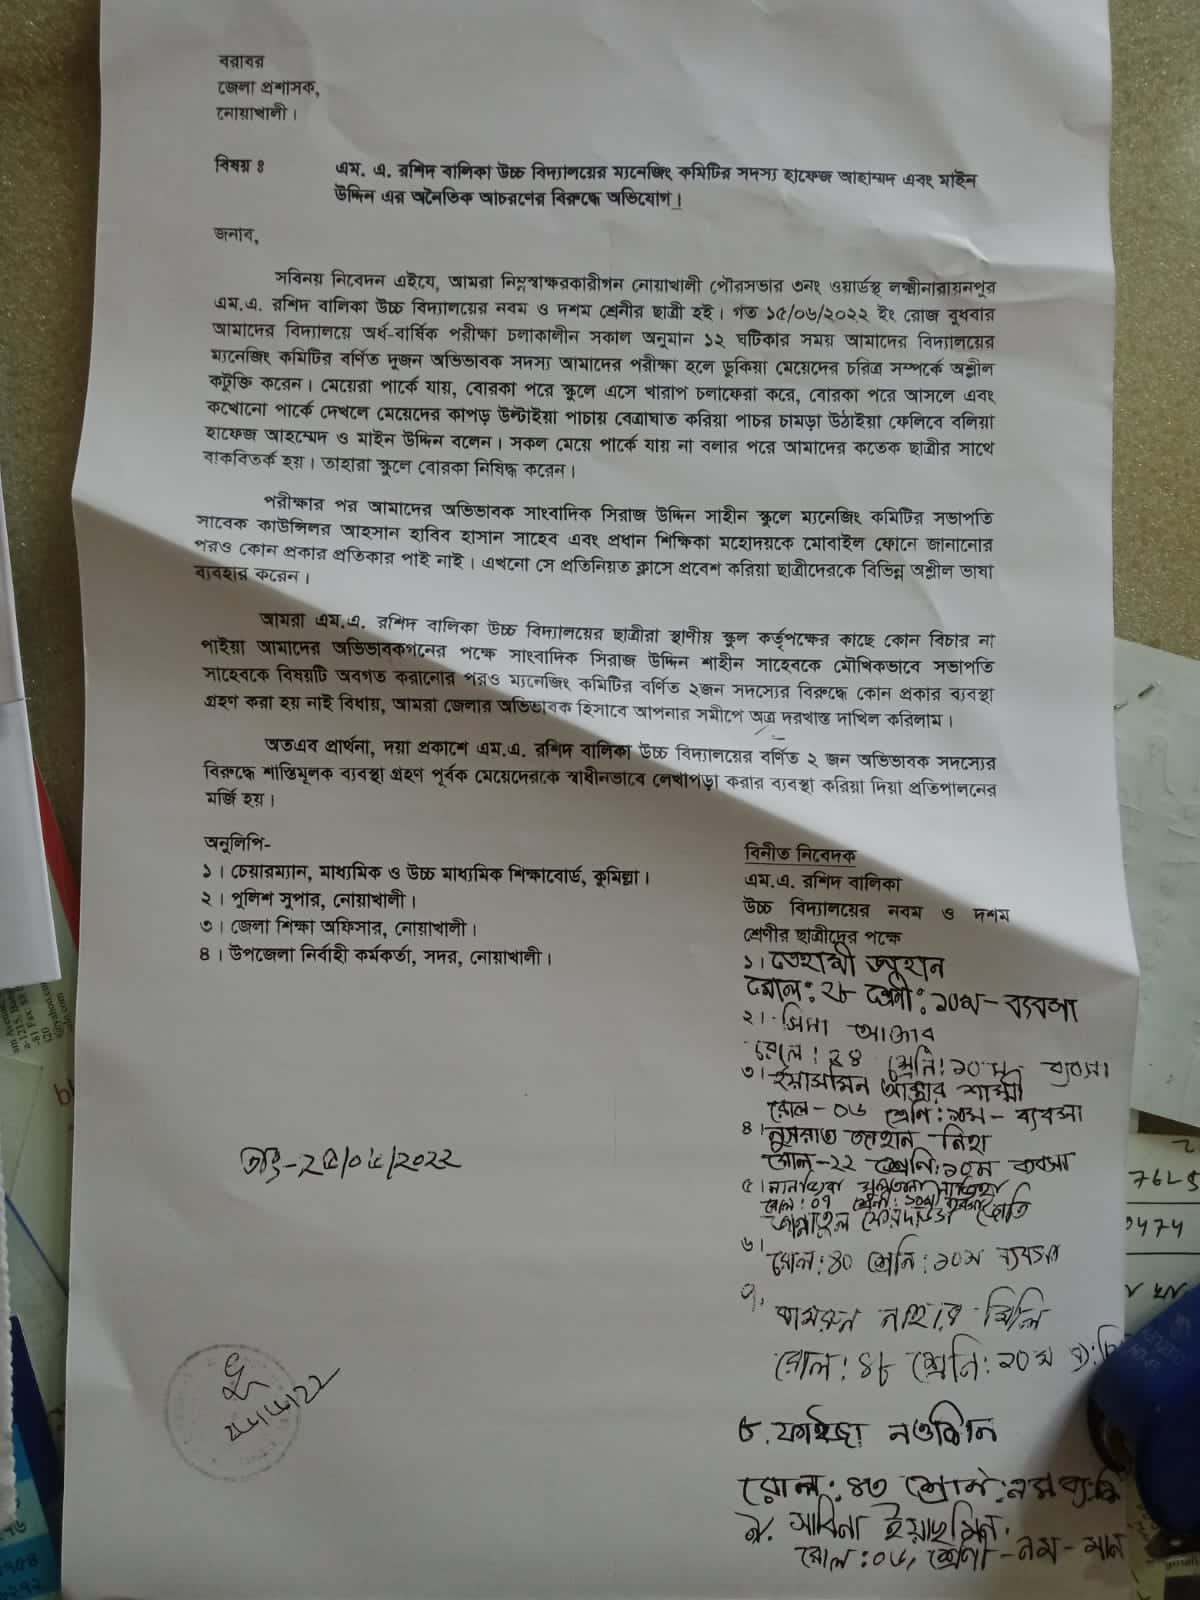 বরাবর
জেলা প্রশাসক,
নোয়াখালী।
বিষয় ঃ এম. এ. রশিদ বালিকা উচ্চ বিদ্যালয়ের ম্যনেজিং কমিটির সদস্য হাফেজ আহাম্মদ এবং মাইন
উদ্দিন এর অনৈতিক আচরণের বিরুদ্ধে অভিযোগ।
জনাব,
সবিনয় নিবেদন এইযে, আমরা নিম্নস্বাক্ষরকারীগন নোয়াখালী পৌরসভার ৩নং ওয়ার্ডস্থ লক্ষ্মীনারায়নপুর
এম.এ. রশিদ বালিকা উচ্চ বিদ্যালয়ের নবম ও দশম শ্রেনীর ছাত্রী হই। গত ১৫/০৬/২০২২ ইং রোজ বুধবার
আমাদের বিদ্যালয়ে অর্ধ-বার্ষিক পরীক্ষা চলাকালীন সকাল অনুমান ১২ ঘটিকার সময় আমাদের বিদ্যালয়ের
ম্যনেজিং কমিটির বর্ণিত দুজন অভিভাবক সদস্য আমাদের পরীক্ষা হলে ঢুকিয়া মেয়েদের চরিত্র সম্পর্কে অশ্লীল
কটুক্তি করেন। মেয়েরা পার্কে যায়, বোরকা পরে স্কুলে এসে খারাপ চলাফেরা করে, বোরকা পরে আসলে এবং
কখোনো পার্কে দেখলে মেয়েদের কাপড় উল্টাইয়া পাচায় বেত্রাঘাত করিয়া পাচর চামড়া উঠাইয়া ফেলিবে বলিয়া
হাফেজ আহম্মেদ ও মাইন উদ্দিন বলেন। সকল মেয়ে পার্কে যায় না বলার পরে আমাদের কতেক ছাত্রীর সাথে
বাকবিতর্ক হয়। তাহারা স্কুলে বোরকা নিষিদ্ধ করেন।
পরীক্ষার পর আমাদের অভিভাবক সাংবাদিক সিরাজ উদ্দিন সাহীন স্কুলে ম্যনেজিং কমিটির সভাপতি
সাবেক কাউন্সিলর আহসান হাবিব হাসান সাহেব এবং প্রধান শিক্ষিকা মহোদয়কে মোবাইল ফোনে জানানোর
পরও কোন প্রকার প্রতিকার পাই নাই। এখনো সে প্রতিনিয়ত ক্লাসে প্রবেশ করিয়া ছাত্রীদেরকে বিভিন্ন অশ্লীল ভাষা
ব্যবহার করেন।
আমরা এম.এ. রশিদ বালিকা উচ্চ বিদ্যালয়ের ছাত্রীরা স্থাণীয় স্কুল কর্তৃপক্ষের কাছে কোন বিচার না
পাইয়া আমাদের অভিভাবকগনের পক্ষে সাংবাদিক সিরাজ উদ্দিন শাহীন সাহেবকে মৌখিকভাবে সভাপতি
সাহেবকে বিষয়টি অবগত করানোর পরও ম্যনেজিং কমিটির বর্ণিত ২জন সদস্যের বিরুদ্ধে কোন প্রকার ব্যবস্থা
গ্রহণ করা হয় নাই বিধায়, আমরা জেলার অভিভাবক হিসাবে আপনার সমীপে অত্র দরখাস্ত দাখিল করিলাম।
অতএব প্রার্থনা, দয়া প্রকাশে এম.এ. রশিদ বালিকা উচ্চ বিদ্যালয়ের বর্ণিত ২ জন অভিভাবক সদস্যের
বিরুদ্ধে শাস্তিমূলক ব্যবস্থা গ্রহণ পূর্বক মেয়েদেরকে স্বাধীনভাবে লেখাপড়া করার ব্যবস্থা করিয়া দিয়া প্রতিপালনের
মর্জি হয়।
অনুলিপি-
১। চেয়ারম্যান, মাধ্যমিক ও উচ্চ মাধ্যমিক শিক্ষাবোর্ড, কুমিল্লা।
২। পুলিশ সুপার, নোয়াখালী।
৩। জেলা শিক্ষা অফিসার, নোয়াখালী।
৪। উপজেলা নির্বাহী কর্মকর্তা, সদর, নোয়াখালী।
বিনীত নিবেদক
এম.এ. রশিদ বালিকা
উচ্চ বিদ্যালয়ের নবম ও দশম
শ্রেণীর ছাত্রীদের পক্ষে
১। জাহান
রোল: ২৮ শ্রেণী: ১০ম - ব্যবসা
২। আক্তার
রোল: ২৪ শ্রেনি: ১০ম - ব্যবসা
৩। ইয়াসমিন আক্তার শাম্মী
রোল - ০৬ শ্রেণি: ১০ম - ব্যবসা
৪। নুসরাত জাহান নিহা
রোল-২২ শ্রেনি: ১০ম ব্যবসা
৫। সুলতানা
রোল: ০৭ শ্রেণী: ১০ম ব্যবসা
জান্নাতুল ফেরদাউস জোতি
৬। রোল: ৪০ শ্রেনি: ১০ম ব্যবসা
৭. কামরুন নাহার মিলি
রোল: ৪৮ শ্রেনি: ১০ম
৮. ফাইজা নওশিন
রোল: ৪৩
৯. সাবিনা ইয়াছমিন
রোল: ০৬, শ্রেণী - নম - মান